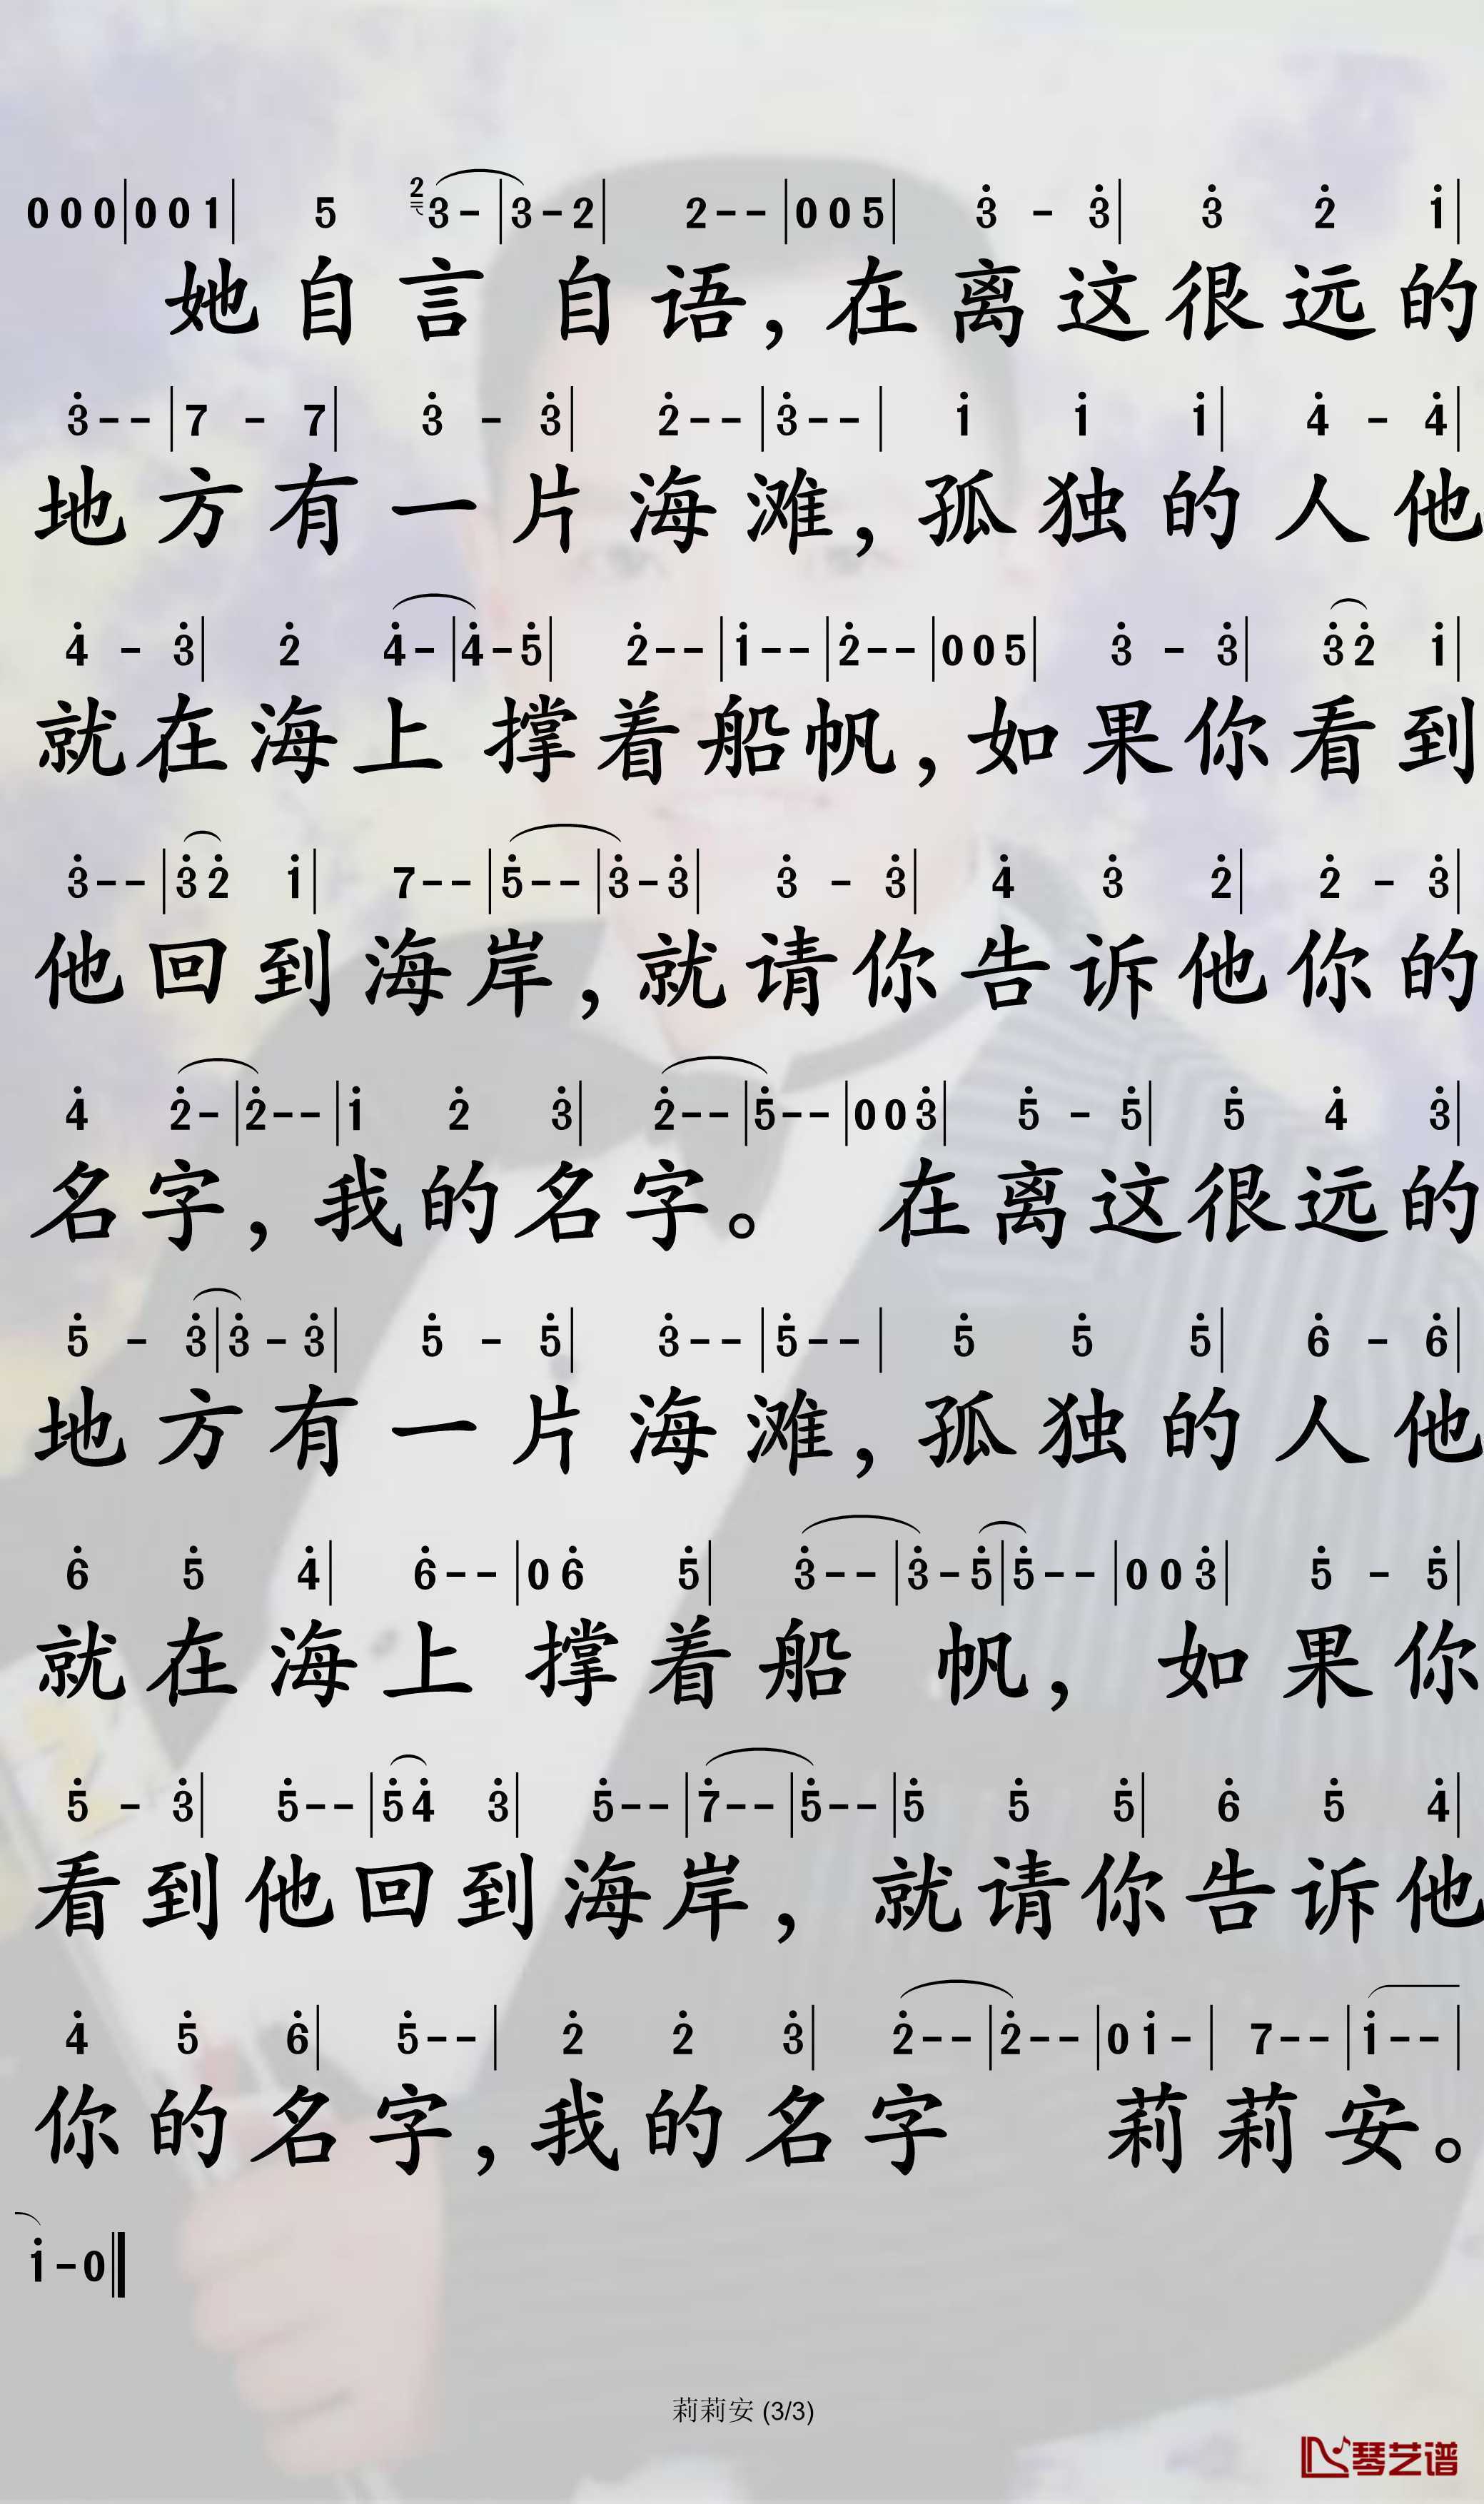 000|001| 5 2 3-|3-2| 2--|005| 3̇ - 3̇| 3̇ 2̇ 1̇|
她自言 自语，在离这很远的
3̇--|7 - 7| 3̇ - 3̇| 2̇--|3̇--| 1̇ 1̇ 1̇| 4̇ - 4̇|
地方有一片海滩，孤独的人他
4̇ - 3̇| 2̇ 4̇-|4̇-5̇| 2̇--|1̇--|2̇--|005| 3̇ - 3̇| 3̇2̇ 1̇|
就在海上 撑着船帆，如果你看到
3̇--|3̇2̇ 1̇| 7--|5̇--|3̇-3̇| 3̇ - 3̇| 4̇ 3̇ 2̇| 2̇ - 3̇|
他回到海岸，就请你告诉他你的
4̇ 2̇-|2̇--|1̇ 2̇ 3̇| 2̇--|5̇--|003̇| 5̇ - 5̇| 5̇ 4̇ 3̇|
名字，我的名字。 在离这很远的
5̇ - 3̇|3̇ - 3̇| 5̇ - 5̇| 3̇--|5̇--| 5̇ 5̇ 5̇| 6̇ - 6̇|
地方有一片海滩，孤独的人他
6̇ 5̇ 4̇| 6̇--|06̇ 5̇| 3̇--|3̇-5̇|5̇--|003̇| 5̇ - 5̇|
就在海上 撑着船 帆，如果你
5̇ - 3̇| 5̇--|5̇4̇ 3̇| 5̇--|7̇--|5̇--|5̇ 5̇ 5̇| 6̇ 5̇ 4̇|
看到他回到海岸，就请你告诉他
4̇ 5̇ 6̇| 5̇--| 2̇ 2̇ 3̇| 2̇--|2̇--|01̇-| 7--|1̇--|
你的名字，我的名字 莉莉安。
1̇-0‖
莉莉安 (3/3)
琴艺谱